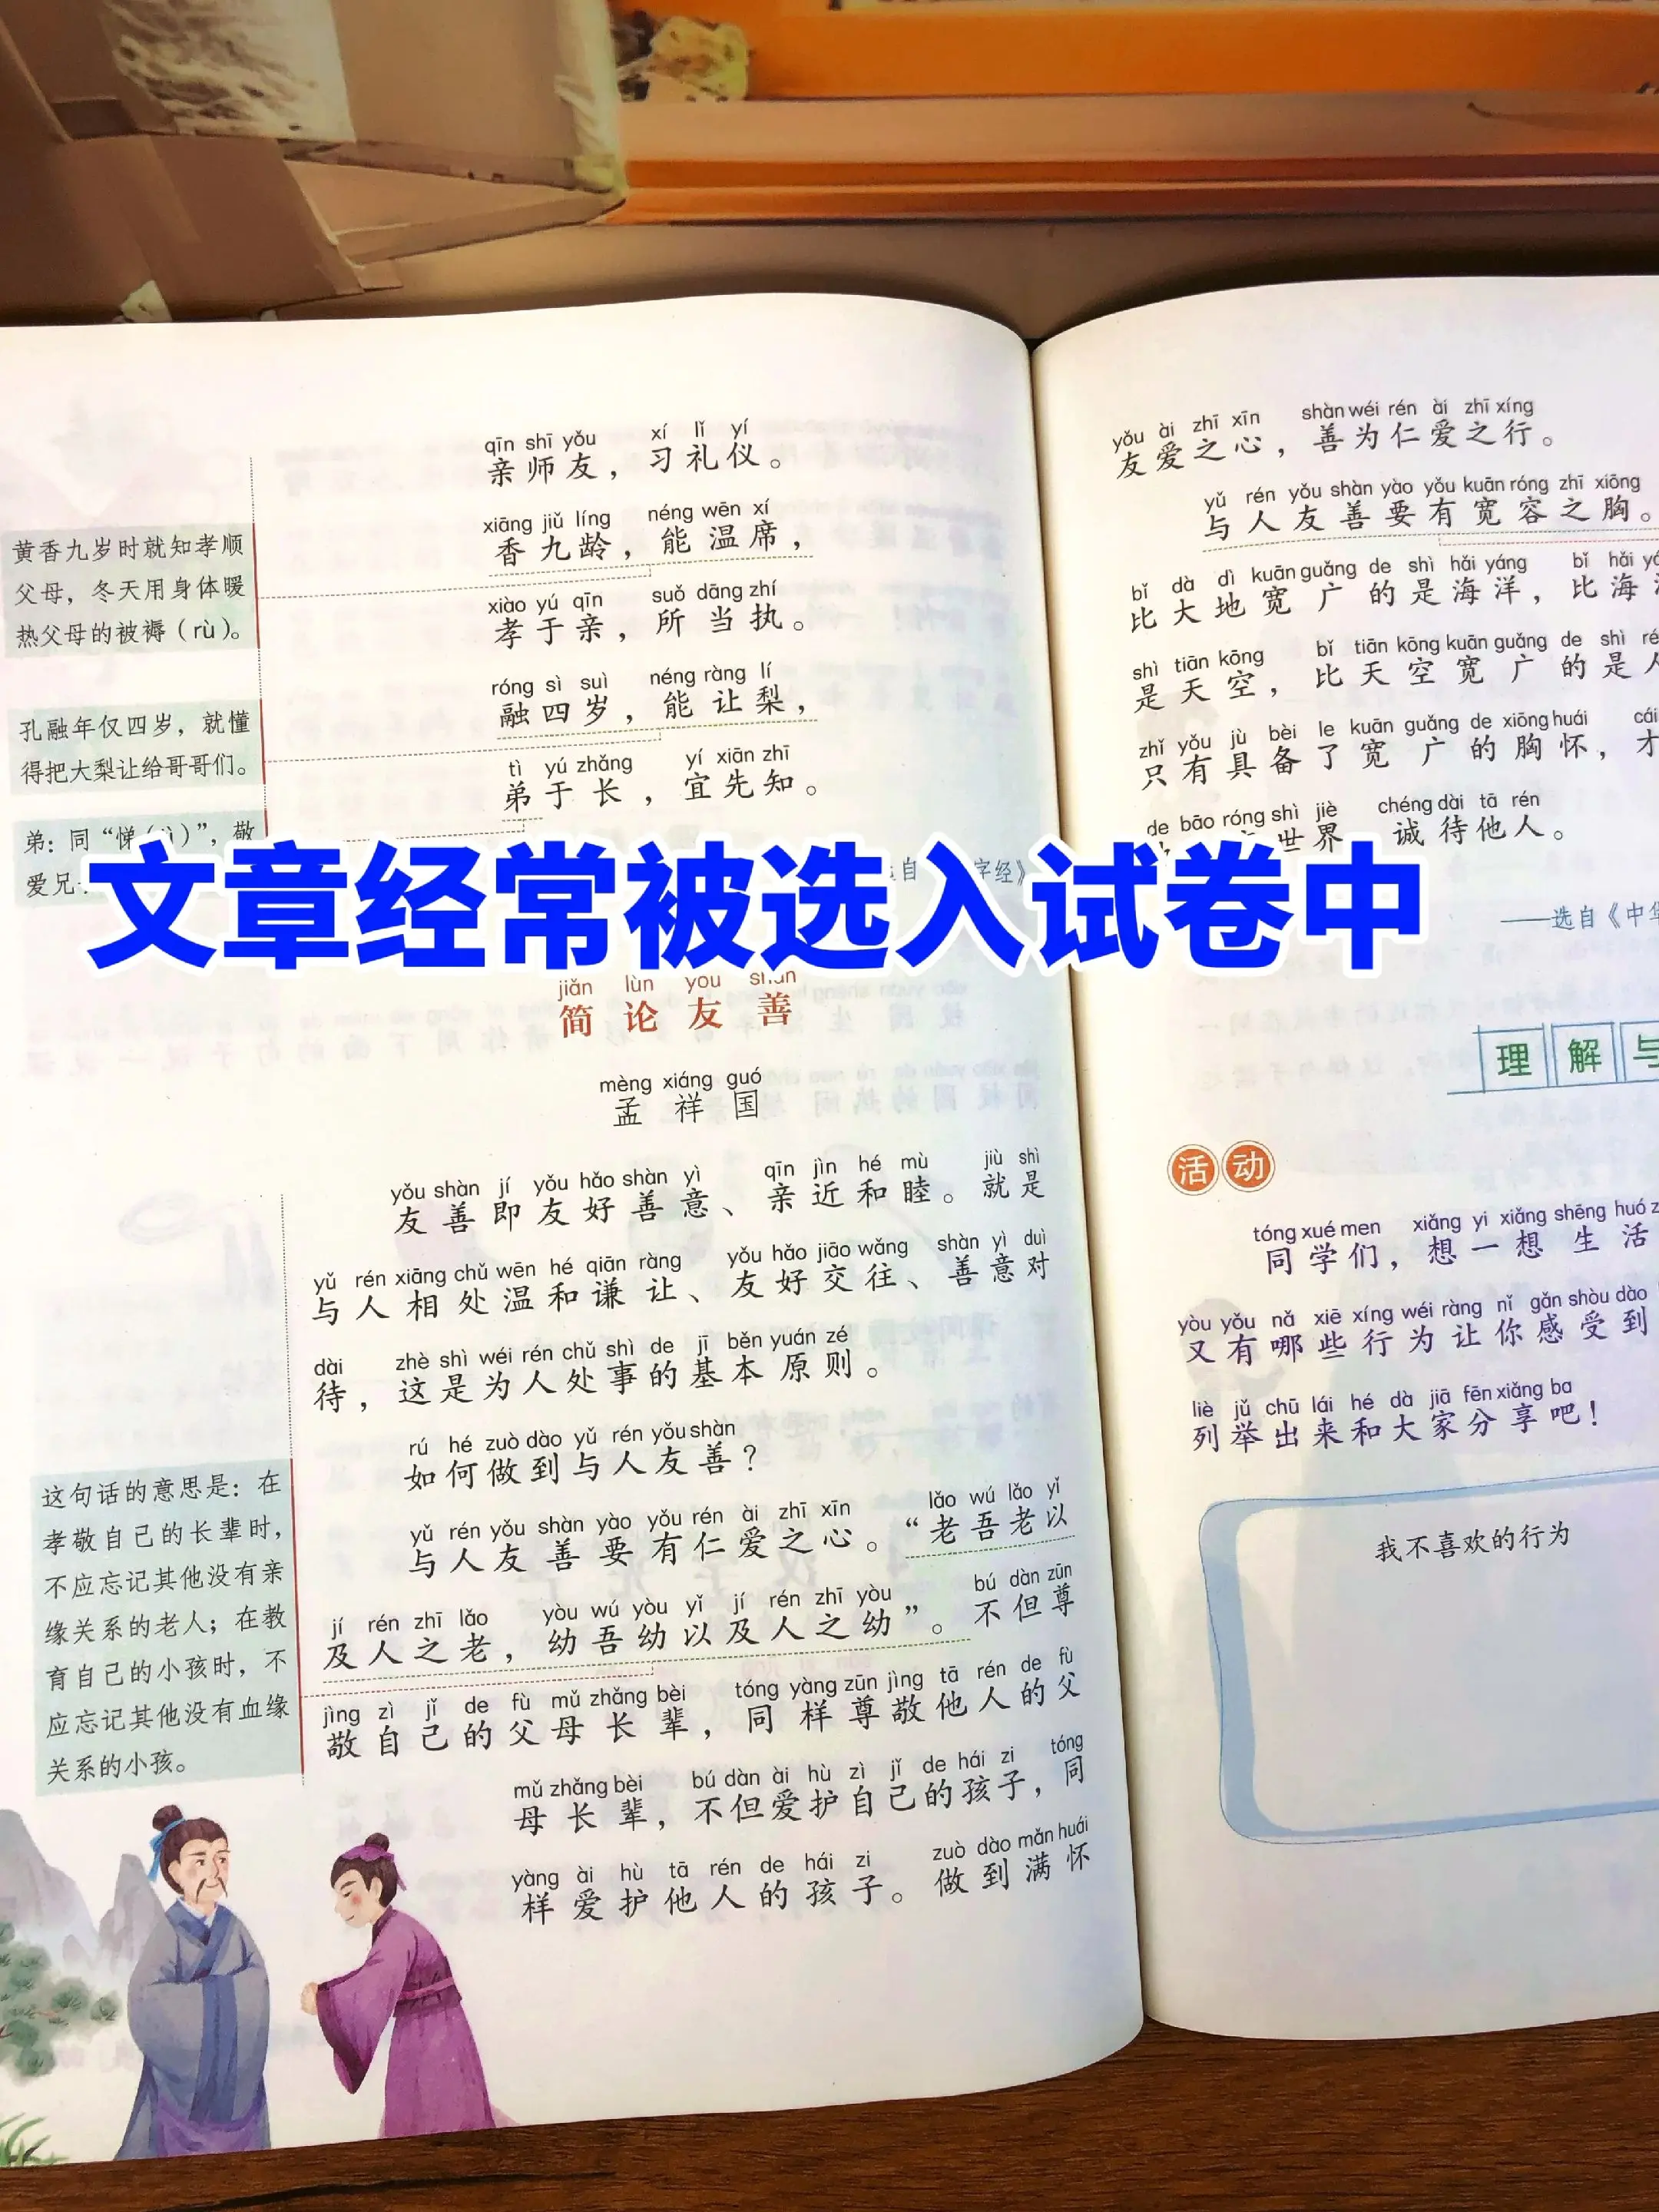 qīn shī yǒu xí lǐ yí
亲师友，习礼仪。
xiāng jiǔ líng néng wēn xí
香九龄，能温席，
xiào yú qīn suǒ dāng zhí
孝于亲，所当执。
róng sì suì néng ràng lí
融四岁，能让梨，
tì yú zhǎng yí xiān zhī
弟于长，宜先知。
自
字经》
黄香九岁时就知孝顺
父母，冬天用身体暖
热父母的被褥（rù）。
孔融年仅四岁，就懂
得把大梨让给哥哥们。
弟：同“悌
”，敬
爱兄
文章经常被选入试卷中
jiǎn lùn you
简论友善
mèng xiáng guó
孟祥国
yǒu shàn jí yǒu hǎo shàn yì qīn jìn hé mù jiù shì
友善即友好善意、亲近和睦。就是
yǔ rén xiāng chǔ wēn hé qiān ràng yǒu hǎo jiāo wǎng shàn yì duì
与人相处温和谦让、友好交往、善意对
dài zhè shì wéi rén chǔ shì de jī běn yuán zé
待，这是为人处事的基本原则。
rú hé zuò dào yǔ rén yǒu shàn
如何做到与人友善？
yǔ rén yǒu shàn yào yǒu rén ài zhī xīn lǎo wú lǎo yǐ
与人友善要有仁爱之心。“老吾老以
jí rén zhī lǎo yòu wú yòu yǐ jí rén zhī yòu bú dàn zūn
及人之老，幼吾幼以及人之幼”。不但尊
jìng zì jǐ de fù mǔ zhǎng bèi tóng yàng zūn jìng tā rén de fù
敬自己的父母长辈，同样尊敬他人的父
mǔ zhǎng bèi bú dàn ài hù zì jǐ de hái zi tóng
母长辈，不但爱护自己的孩子，同
yàng ài hù tā rén de hái zi zuò dào mǎn huái
样爱护他人的孩子。做到满怀
这句话的意思是：在
孝敬自己的长辈时，
不应忘记其他没有亲
缘关系的老人；在教
育自己的小孩时，不
应忘记其他没有血缘
关系的小孩。
yǒu ài zhī xīn shàn wéi rén ài zhī xíng
友爱之心，善为仁爱之行。
yǔ rén yǒu shàn yào yǒu kuān róng zhī xiōng
与人友善要有宽容之胸。
bǐ dà dì kuān guǎng de shì hǎi yáng bǐ hǎi
比大地宽广的是海洋，比海
shì tiān kōng bǐ tiān kōng kuān guǎng de shì
是天空，比天空宽广的是
zhǐ yǒu jù bèi le kuān guǎng de xiōng huái
只有具备了宽广的胸怀，才
de bāo róng shì jiè chéng dài tā rén
世界 诚待他人。
——选自《中华
理解与
活动
tóng xué men xiǎng yi xiǎng shēng huó
同学们，想一想生活
yòu yǒu nǎ xiē xíng wéi ràng nǐ gǎn shòu dào
又有哪些行为让你感受到
liè jǔ chū lái hé dà jiā fēn xiǎng ba
列举出来和大家分享吧！
我不喜欢的行为